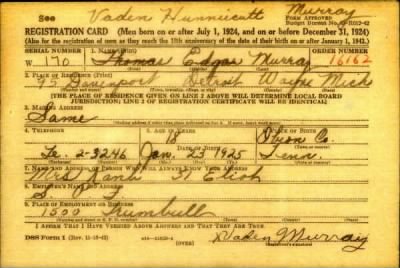 See Vaden Hunnicutt Murray
FORM APPROVED
REGISTRATION CARD (Men born on or after July 1, 1924, and on or before December 31, 1924)
(Also for the registration of men as they reach the 18th anniversary of the date of their birth on or after January 1, 1943.)
SERIAL NUMBER 1. NAME (Print) ORDER NUMBER
W 170 Thomas Edgar Murray 16162
2. PLACE OF RESIDENCE (Print)
95 Davenport Detroit Wayne Mich
(THE PLACE OF RESIDENCE GIVEN ON LINE 2 ABOVE WILL DETERMINE LOCAL BOARD
JURISDICTION; LINE 2 OF REGISTRATION CERTIFICATE WILL BE IDENTICAL)
3. MAILING ADDRESS
Same
4. TELEPHONE 5. AGE IN YEARS 6. PLACE OF BIRTH
18 Co.
Te 2-3246 Jan. 23 1925 Tenn.
7. NAME AND ADDRESS OF PERSON WHO WILL ALWAYS KNOW YOUR ADDRESS
Mrs.
8. EMPLOYER'S NAME AND ADDRESS
9. PLACE OF EMPLOYMENT OR BUSINESS
1500 Trumbull
I AFFIRM THAT I HAVE VERIFIED ABOVE ANSWERS AND THAT THEY ARE TRUE.
DSS Form 1 (OVER) Vaden Murray